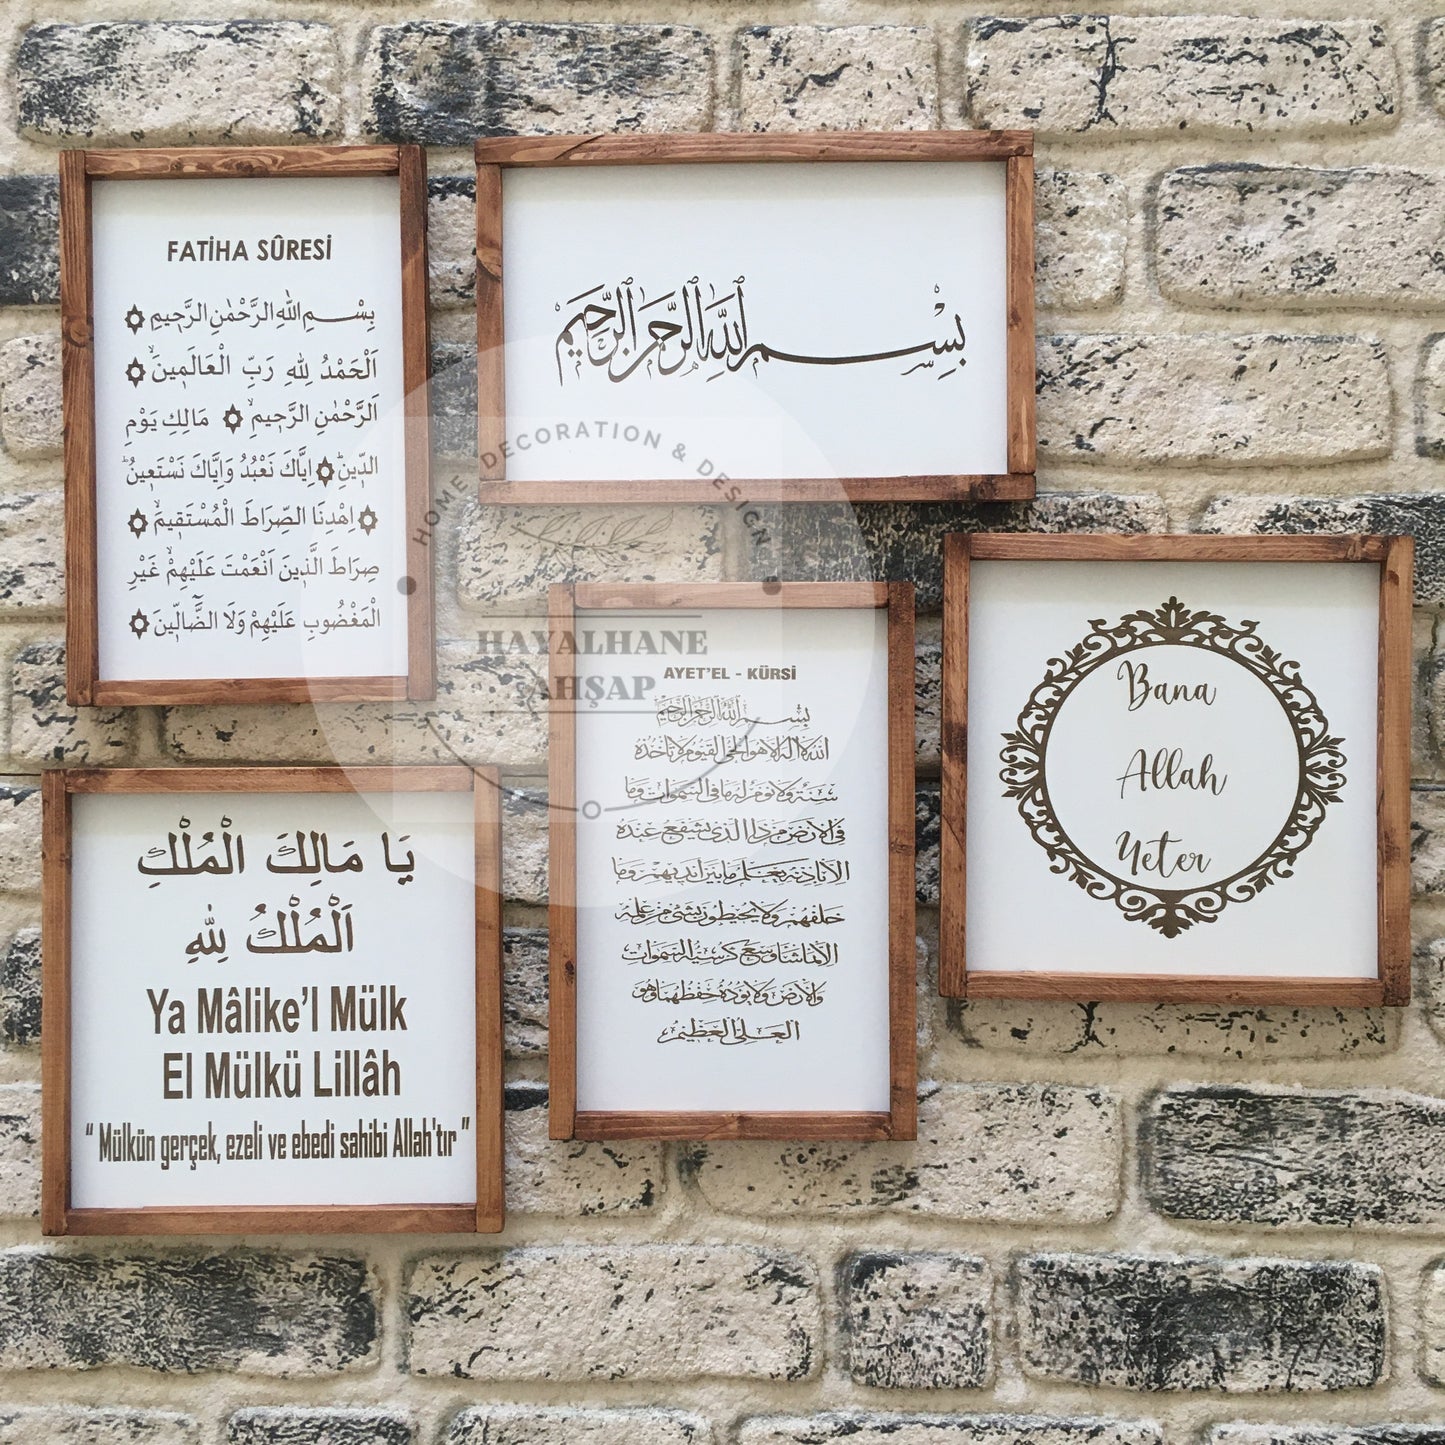 FATİHA SÛRESİ
بِسْمِ اللهِ الرَّحْمٰنِ الرَّحٖيمِ
اَلْحَمْدُ لِلهِ رَبِّ الْعَالَمٖينَۙ
اَلرَّحْمٰنِ الرَّحٖيمِۙ مَالِكِ يَوْمِ
الدّٖينِؕ اِيَّاكَ نَعْبُدُ وَاِيَّاكَ نَسْتَعٖينُؕ
اِهْدِنَا الصِّرَاطَ الْمُسْتَقٖيمَۙ
صِرَاطَ الَّذٖينَ اَنْعَمْتَ عَلَيْهِمْۙ غَيْرِ
الْمَغْضُوبِ عَلَيْهِمْ وَلَا الضَّٓالّٖينَ
بِسْمِ اللَّهِ الرَّحْمَنِ الرَّحِيمِ
HOME DECORATION & DESIGN
HAYALHANE
AHŞAP
يَا مَالِكَ الْمُلْكِ
اَلْمُلْكُ لِلهِ
Ya Mâlike'l Mülk
El Mülkü Lillâh
“ Mülkün gerçek, ezeli ve ebedi sahibi Allah'tır ”
AYET'EL - KÜRSİ
بسم الله الرحمن الرحيم
الله لا اله الا هو الحي القيوم لا تأخذه
سنة ولا نوم له ما في السموات وما
في الارض من ذا الذي يشفع عنده
الا باذنه يعلم ما بين ايديهم وما
خلفهم ولا يحيطون بشئ من علمه
الا بما شاء وسع كرسيه السموات
والارض ولا يؤده حفظهما وهو
العلي العظيم
Bana
Allah
Yeter